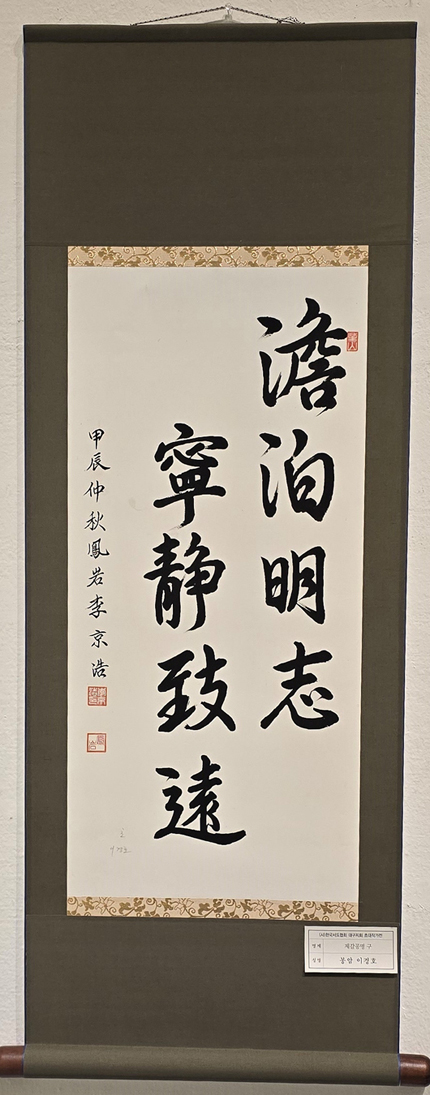 澹泊明志
寧靜致遠
甲辰仲秋鳳岩李京浩
(사)한국서도협회 대구지회 초대작가전
명제 제갈공명 구
성명 봉암 이경호